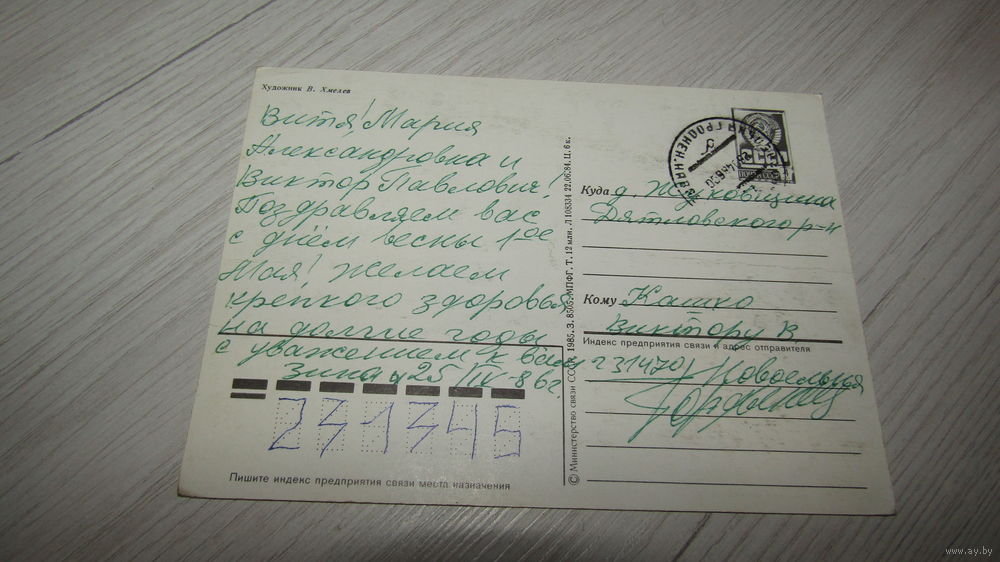 Художник В. Хмелев
Витя! Мария
Александровна и
Виктор Павлович!
Поздравляем вас
с днём весны 1ое
Мая! желаем
крепкого здоровья
на долгие годы
с уважением к вам
Зина 25/IV-86г.
231345
Пишите индекс предприятия связи места назначения
© Министерство связи СССР, 1985. З. 8505. МПФГ. Т. 12 млн. Л 108334 22.06.84. Ц. 6 к.
СССР
Куда д. Жуковщина
Дятловского р-н
Кому Кашко
Виктору В.
Индекс предприятия связи и адрес отправителя
231470 Новоельня
www.ay.by